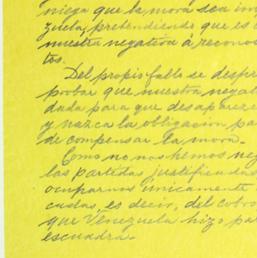 niega que la mora sea imp
zuela, pretendiendo que es i
nuestra negativa á reconoc
tos.
Del propio fallo se despre
probar que nuestra negat
dada para que desaparez
y nazca la obligación pa
de compensar la mora.
Como no nos hemos neg
las partidas justificadas
ocuparnos únicamente
custas, es decir, del cobro
que Venezuela hizo pa
escuadra.